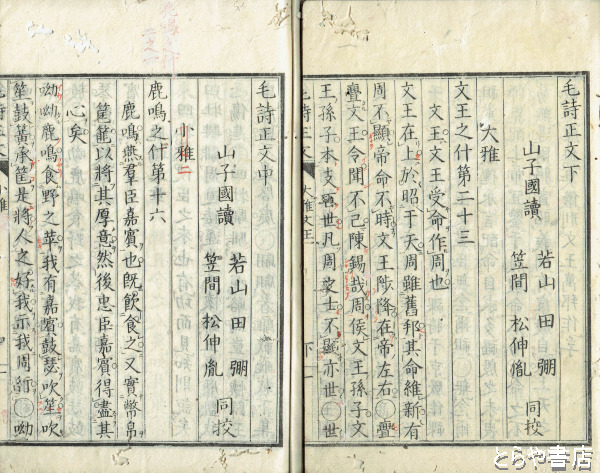 毛詩正文下
山子國讀
若山 田 弸
笠間 松伸胤 同挍
大雅
文王之什第二十三
文王文王受命作周也
文王在上於昭于天周雖舊邦其命維新有
周不顯帝命不時文王陟降在帝左右○亹
亹文王令聞不已陳錫哉周侯文王孫子文
王孫子本支百世凡周之士不顯亦世○世
毛詩正文
大雅文王
下 一
毛詩正文中
山子國讀
若山 田 弸
笠間 松伸胤 同挍
小雅
鹿鳴之什第十六
鹿鳴燕羣臣嘉賓也既飲食之又實幣帛
筐篚以將其厚意然後忠臣嘉賓得盡其
心矣
呦呦鹿鳴食野之苹我有嘉賓鼓瑟吹笙吹
笙鼓簧承筐是將人之好我示我周行○呦
毛詩正文
小雅
とらや書店